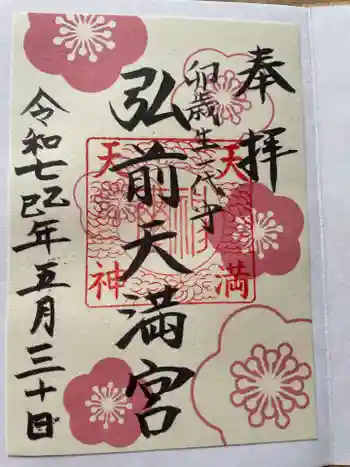 奉拝
卯歳生一代守
弘前天満宮
天満
天神
令和七乙巳年五月三十日